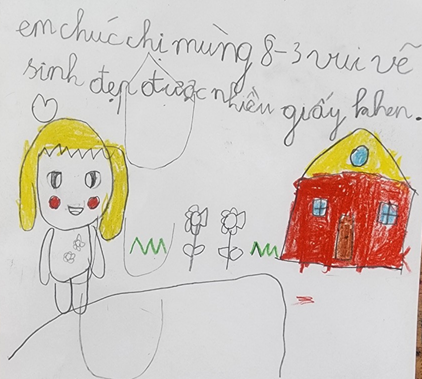 em chúc chị mừng 8-3 vui vẽ
sinh đẹp được nhiều giấy khen.